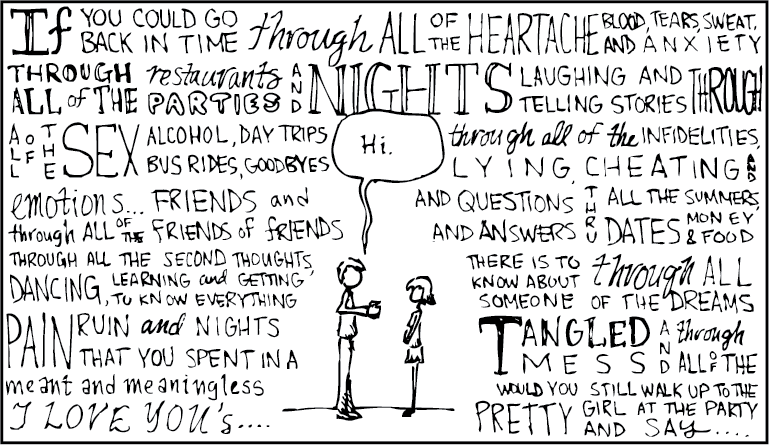 If YOU COULD GO BACK IN TIME through ALL OF THE HEARTACHE BLOOD, TEARS, SWEAT, AND ANXIETY
THROUGH ALL of THE restaurants PARTIES AND NIGHTS LAUGHING AND TELLING STORIES THROUGH
ALL OF THE SEX ALCOHOL, DAY TRIPS BUS RIDES, GOODBYES through all of the INFIDELITIES, LYING, CHEATING AND
emotions... FRIENDS and through ALL OF THE FRIENDS of FRIENDS AND QUESTIONS AND ANSWERS THRU ALL THE SUMMERS, DATES MONEY & FOOD
THROUGH ALL THE SECOND THOUGHTS, DANCING, LEARNING and GETTING TO KNOW EVERYTHING THERE IS TO KNOW ABOUT SOMEONE through ALL OF THE DREAMS
PAIN RUIN and NIGHTS THAT YOU SPENT IN A TANGLED MESS AND through ALL OF THE
meant and meaningless I LOVE YOU's.... WOULD YOU STILL WALK UP TO THE PRETTY GIRL AT THE PARTY AND SAY....
Hi.